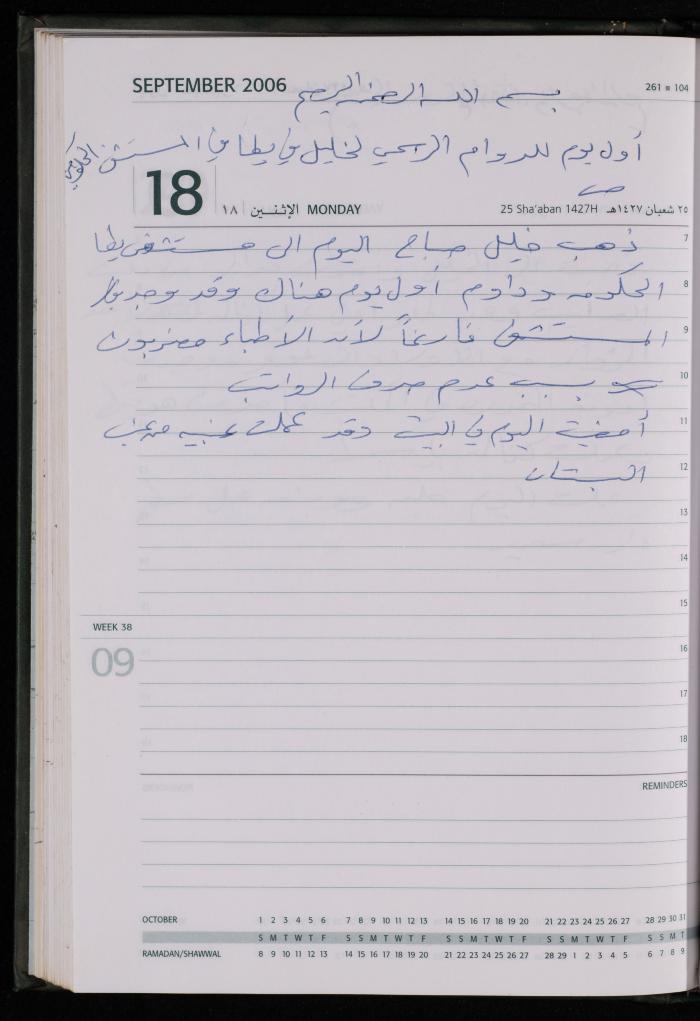 SEPTEMBER 2006
بسم الله الرحمن الرحيم
261 ■ 104
أول يوم للدوام الرسمي لخليل في يطا في المستشفى الحكومي
18
١٨ الإثنـــين MONDAY
25 Sha'aban 1427H ٢٥ شعبان ١٤٢٧هـ
7 ذهب خليل صباح اليوم الى مستشفى يطا
8 الحكومه وداوم أول يوم هناك وقد وجد
9 المستشفى فارغاً لأن الأطباء مضربون
10 بسبب عدم صرف الرواتب
11 أمضيت اليوم في البيت وقد عملت عنبيه من عنب
12 البستان
13
14
15
WEEK 38
09
16
17
18
REMINDERS
OCTOBER 1 2 3 4 5 6 7 8 9 10 11 12 13 14 15 16 17 18 19 20 21 22 23 24 25 26 27 28 29 30 31
S M T W T F S S M T W T F S S M T W T F S S M T W T F S S M T
RAMADAN/SHAWWAL 8 9 10 11 12 13 14 15 16 17 18 19 20 21 22 23 24 25 26 27 28 29 1 2 3 4 5 6 7 8 9